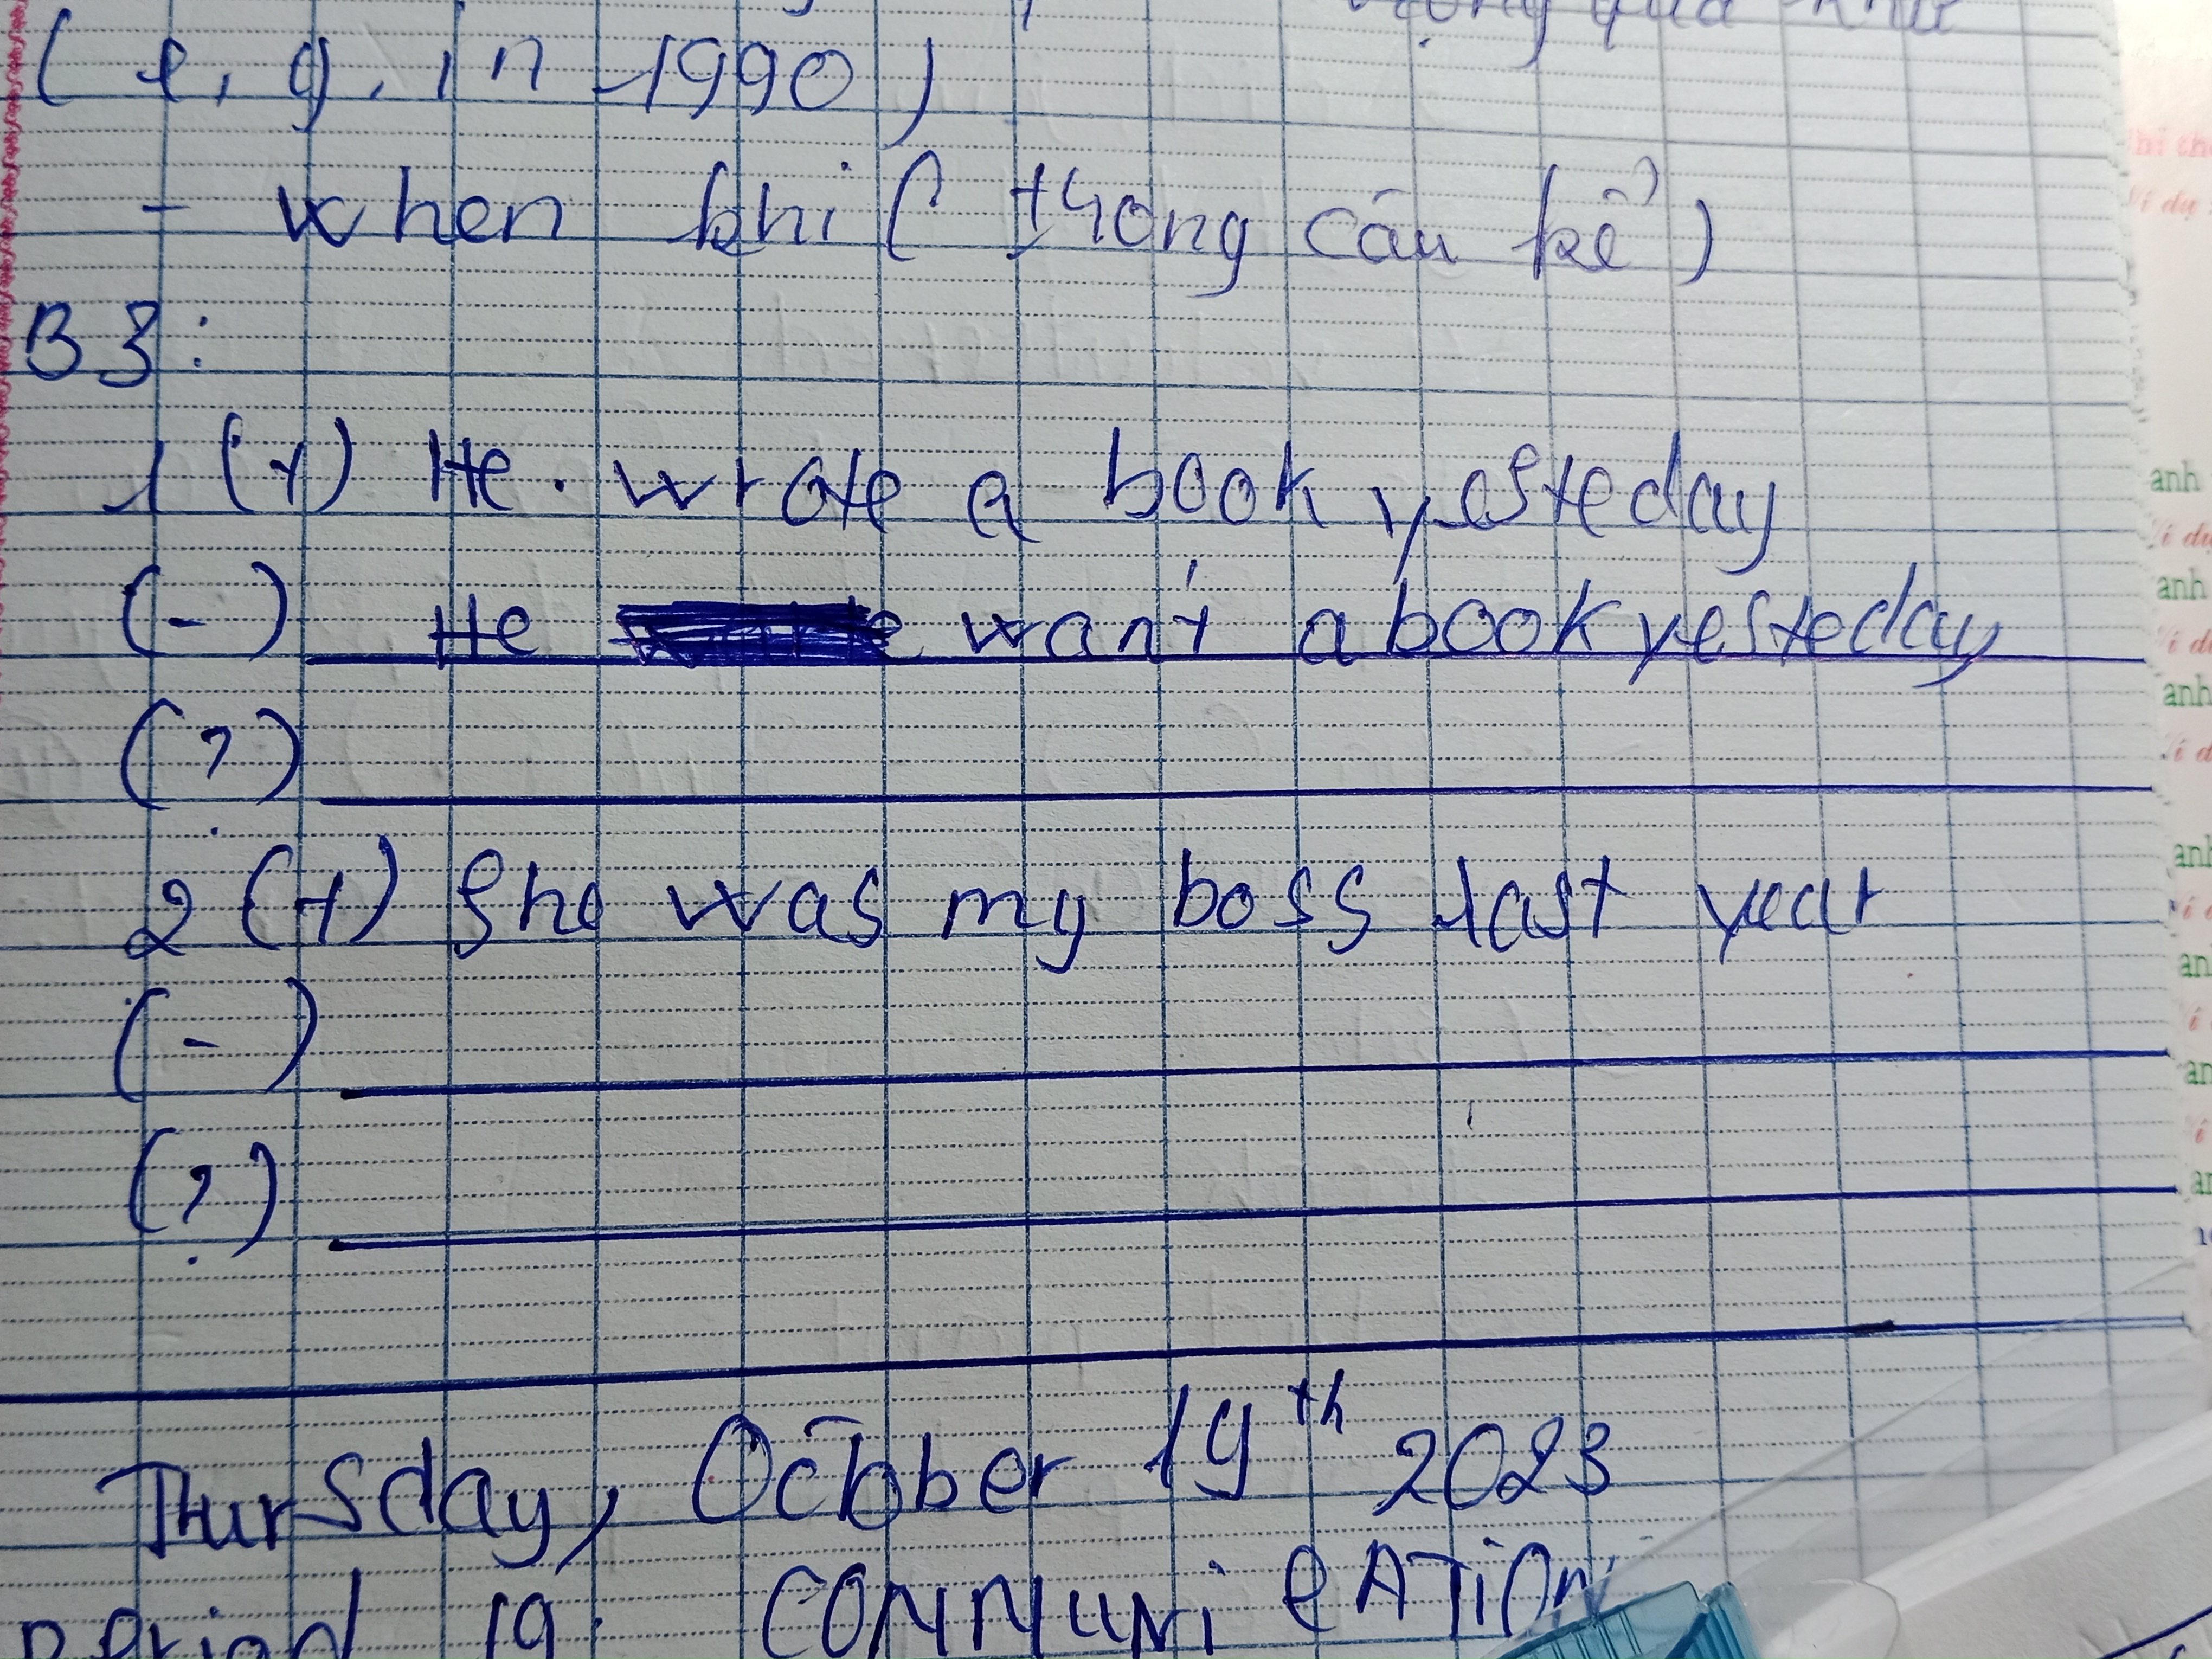 (e, g, in 1990)
- when khi ( trong câu kể )
B3:
1 (+) He. wrote a book yesteday
(-) He wan't a book yesteday
(?)
2 (+) She was my boss last year
(-)
(?)
Thursday, October 19th 2023
Period 19: COMMUNiCATiON
anh
anh
anh
anh